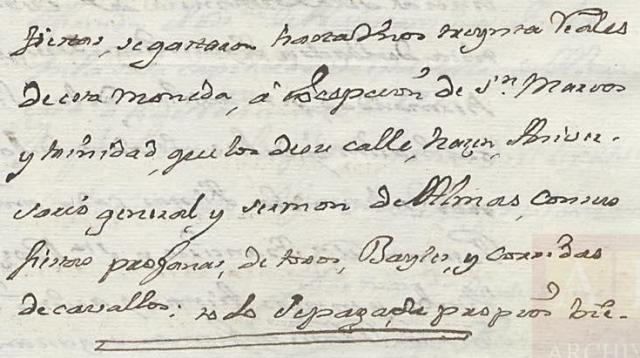 fiestas, se gastaron hasta dhos treynta Reales
de esta moneda, â excepcion de Sn. Marcos
y trinidad, que los de su calle, hazen, Aniver-
sario general, y sermon de Almas, con sus
fiestas profanas, de toros, Bayles, y Corridas
de cavallos; solo se paga, de propios bie-
ARCHIV